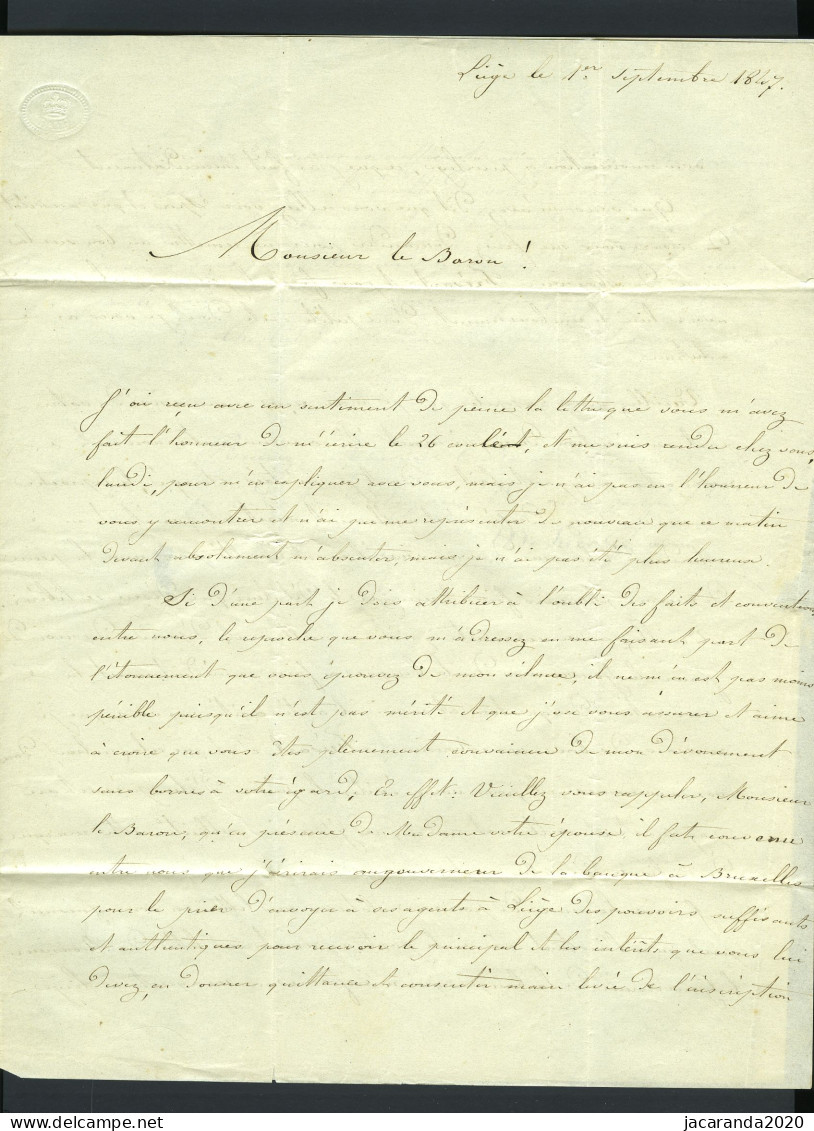 Liège le 1er Septembre 1847.
Monsieur le Baron !
J'ai reçu avec un sentiment de peine la lettre que vous m'avez
fait l'honneur de m'écrire le 26 coulént, et me suis rendu chez vous,
lundi, pour m'en expliquer avec vous, mais je n'ai pas eu l'honneur de
vous y rencontrer et n'ai pu me représenter de nouveau que ce matin
devant absolument m'absenter, mais je n'ai pas été plus heureux.
Si d'une part je dois attribuer à l'oubli des faits et conventions
entre nous, le reproche que vous m'adressez en me faisant part de
l'étonnement que vous éprouvez de mon silence, il ne m'en est pas moins
pénible puisqu'il n'est pas mérité et que j'ose vous assurer et aime
à croire que vous êtes pleinement convaincu de mon dévouement
sans bornes à votre égard; En effet : Veuillez vous rappeler, Monsieur
le Baron, qu'en présence de Madame votre épouse, il fut convenu
entre nous que j'écrirais au gouverneur de la banque à Bruxelles
pour le prier d'envoyer à ses agents à Liège des pouvoirs suffisants
et authentiques pour recevoir le principal et les intérêts que vous lui
devez, en donner quittance et consentir main levée de l'inscription
jacaranda2020